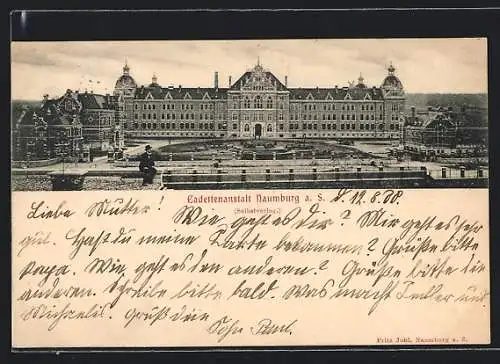 Cadettenanstalt Naumburg a. S. d. 12.8.00.
(Selbstverlag.)
Liebe Mutter! Wie geht es dir? Mir geht es sehr
gut. Hast du meine Carte bekommen? Grüße bitte
papa. Wie geht es den anderen? Grüße bitte die
anderen. Schreibe bitte bald. Was macht Teller und
Michaelis. Gruß dein
Sohn Paul.
Fritz Juhl, Naumburg a. S.